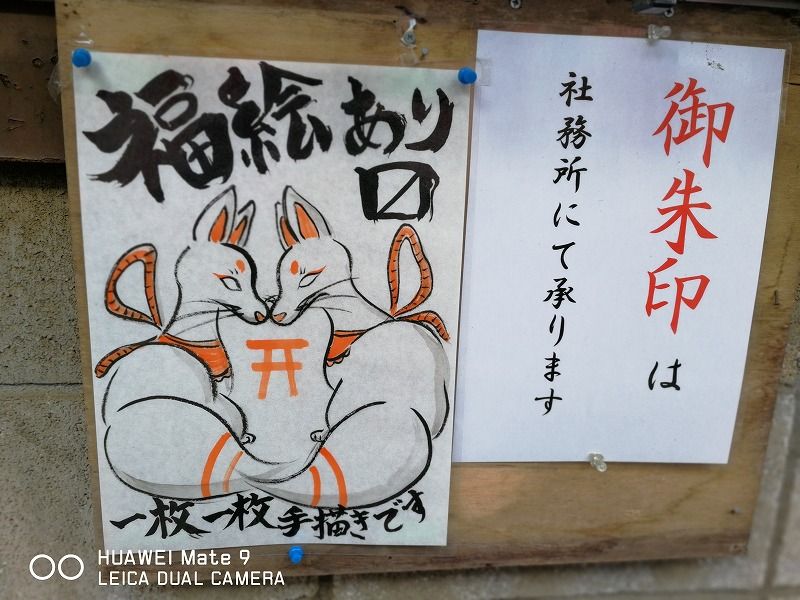 福絵あり〼
一枚一枚手描きです
御朱印は
社務所にて承ります
HUAWEI Mate 9
LEICA DUAL CAMERA